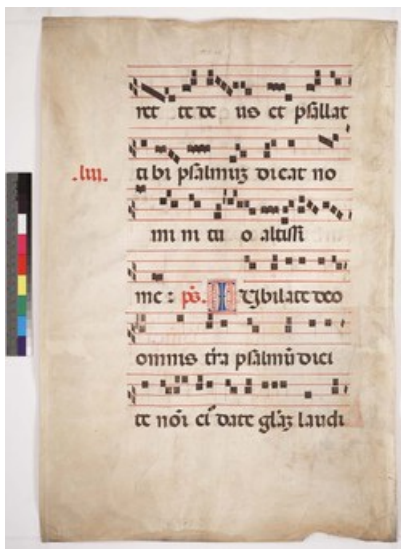 ret te de us et psallat
ti bi psalmuz dicat no
mi ni tu o altissi
me : ps. I ubilate deo
omnis tra psalmu dici
te noi ei date glaz laudi